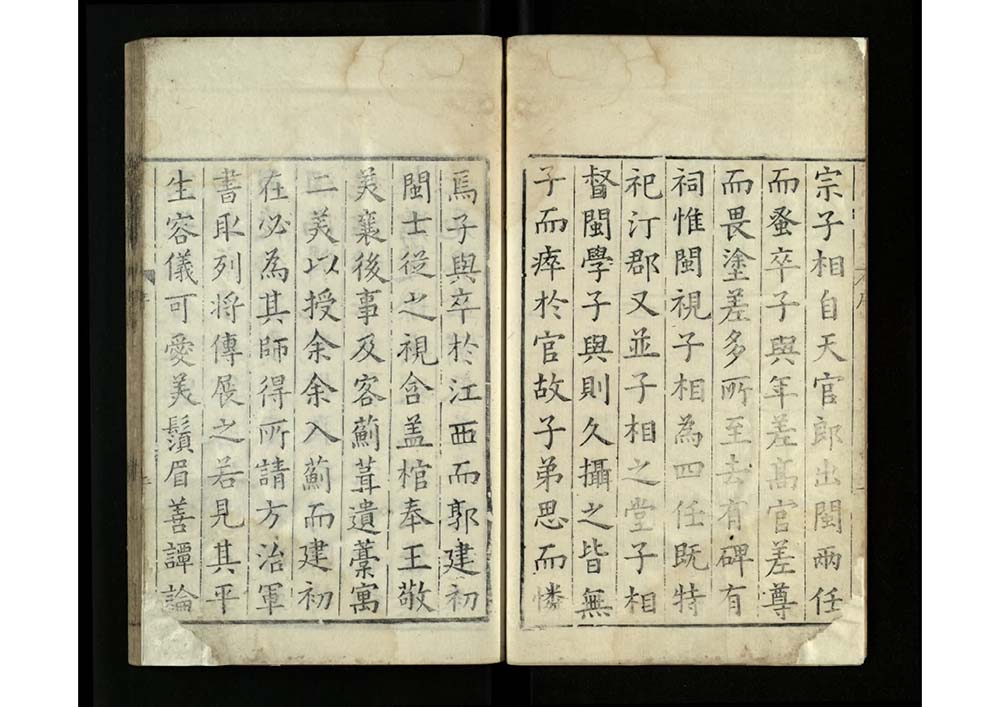 宗子相自天官郎出閩兩任
而蚤卒子與年差高官差尊
而畏塗差多所至去有碑有
祠惟閩視子相為四任既特
祀汀郡又並子相之堂子相
督閩學子與則久攝之皆無
子而瘁於官故子弟思而憐
焉子與卒於江西而郭建初
閩士從之視含盖棺奉王敬
美襄後事及客薊葺遺藳寓
二美以授余余入薊而建初
在必為其師得所請方治軍
書取列将傳展之若見其平
生容儀可愛美鬚眉善譚論